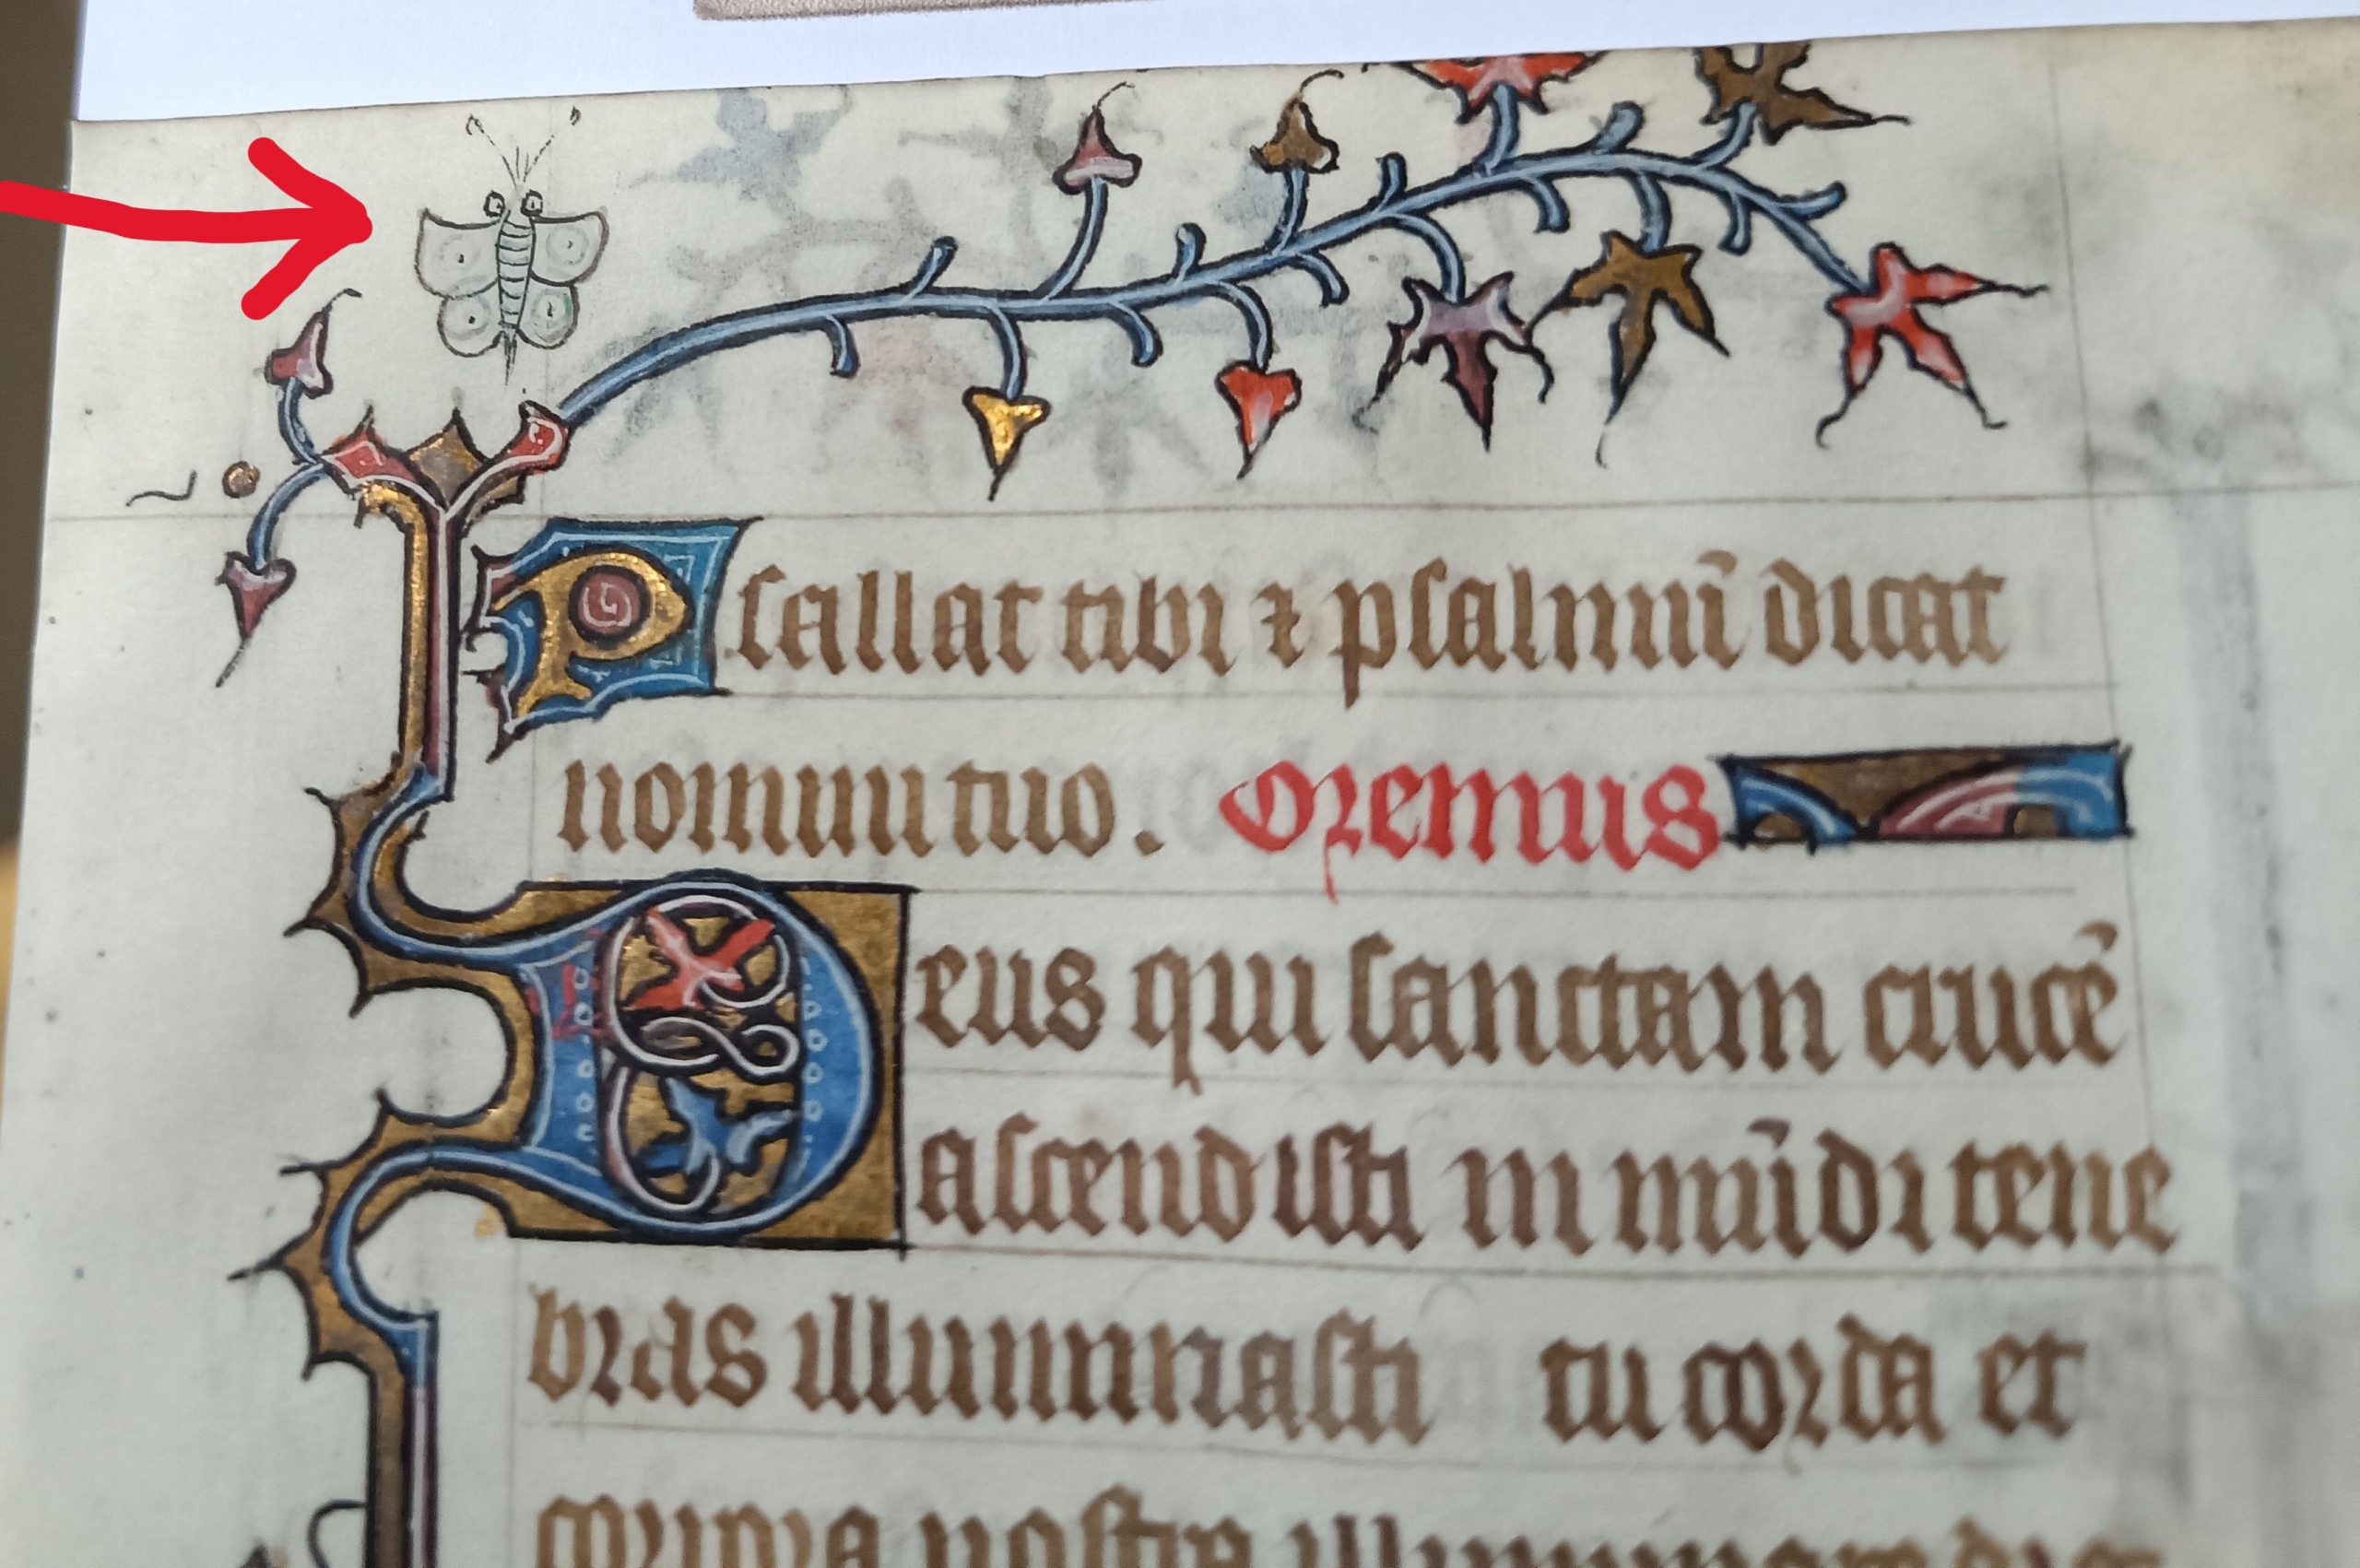 Psallat tibi ⁊ psalmū dicat
nomini tuo. Oremus
Deus qui sanctam crucē
ascendisti in mūdi tene
bras illuminasti tu corda et
corpora nostra illuminare